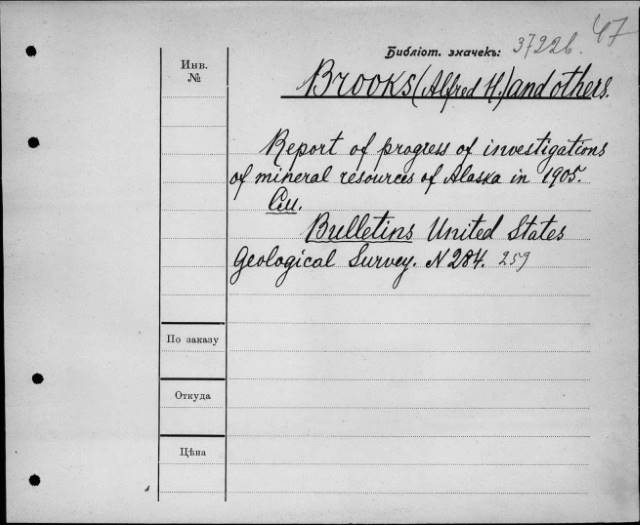 47
Библіот. значекъ: 3722б.
Инв.
№
Brooks (Alfred H.) and others.
Report of progress of investigations
of mineral resources of Alaska in 1905.
См.
Bulletins United States
Geological Survey. N 284. 259
По заказу
Откуда
Цѣна